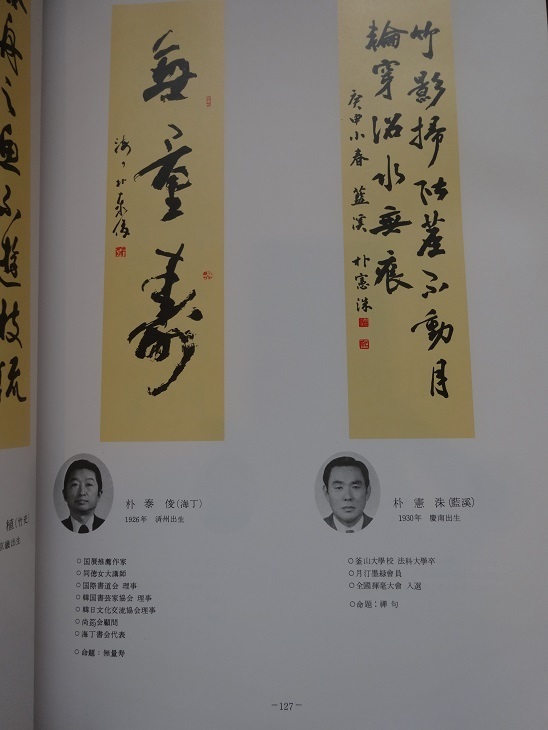 舟之魚不遊枝流
植(竹
出生
無量壽
海丁朴泰俊
朴 泰 俊(海丁)
1926年 済州出生
○国展推薦作家
○同德女大講師
○国際書道会 理事
○韓国書芸家協会 理事
○韓日文化交流協会理事
○尚筍会顧問
○海丁書会代表
○命題：無量寿
竹影掃階塵不動月
輪穿沼水無痕
庚申小春 藍溪 朴憲洙
朴 憲 洙(藍溪)
1930年 慶南出生
○釜山大學校 法科大學卒
○月汀墨緣會員
○全國揮毫大會 入選
○命題：禪 句
－127－